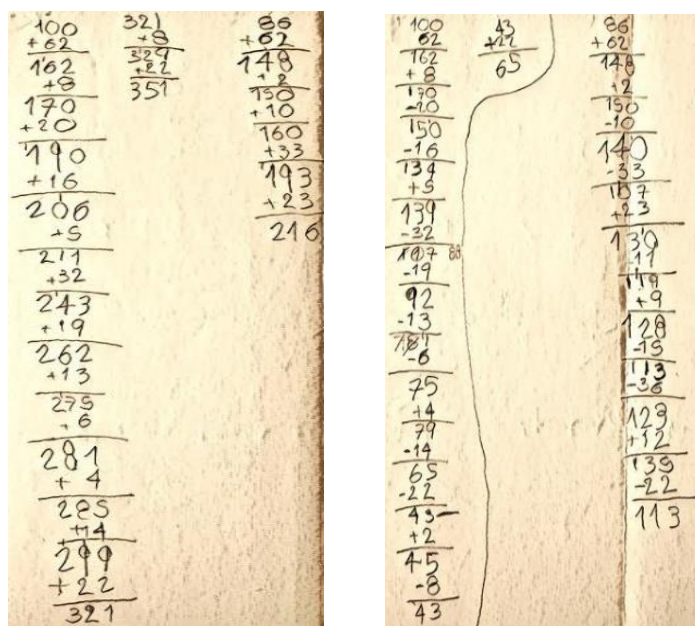 100
+62
162
+8
170
+20
190
+16
206
+5
211
+32
243
+19
262
+13
275
+6
281
+4
285
+14
299
+22
321
321
+8
329
+22
351
86
+62
148
+2
150
+10
160
+33
193
+23
216
100
62
162
+8
170
-20
150
-16
134
+5
139
-32
107 88
-19
92
-13
-6
75
+4
79
-14
65
-22
43-
+2
45
-8
43
43
+22
65
86
+62
148
+2
150
-10
140
-33
107
+23
130
-11
119
+9
128
-15
113
-36
123
+12
135
-22
113